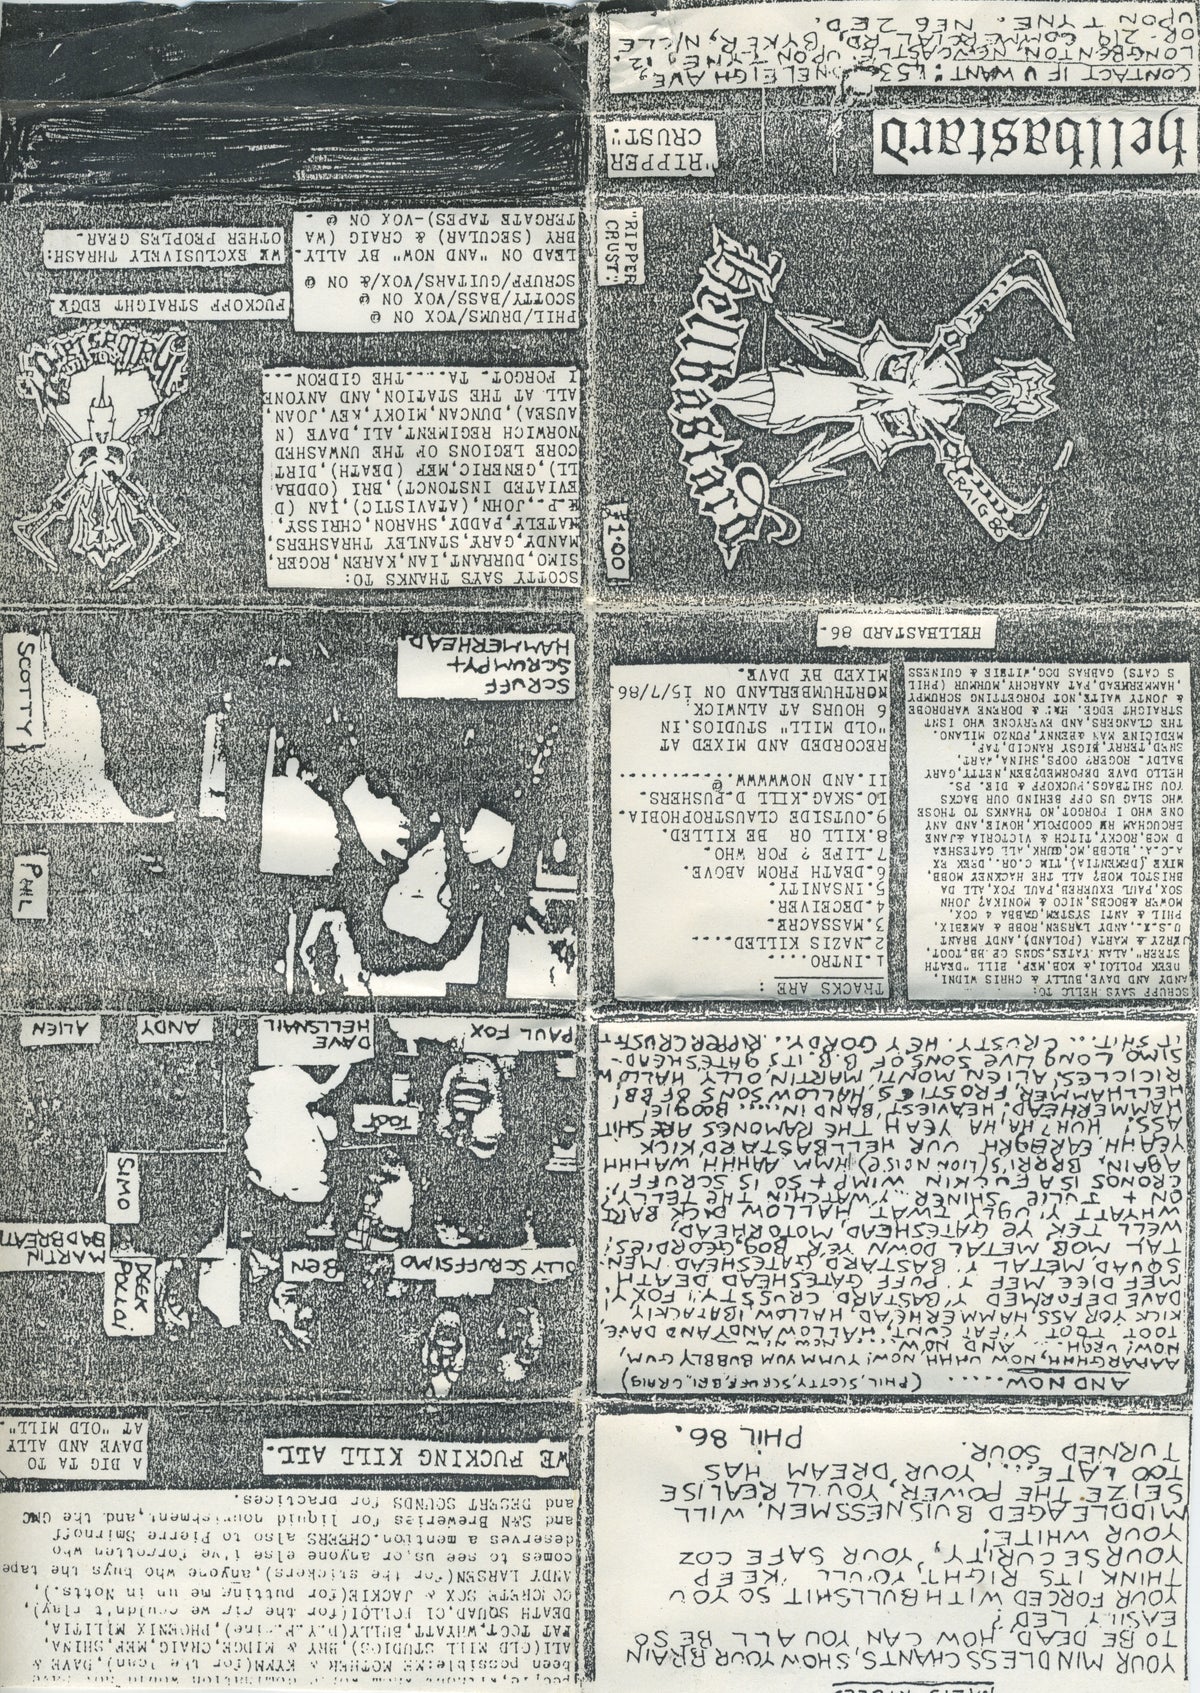 NAZIS KILLED
YOUR MINDLESS CHANTS, SHOW YOUR BRAIN
TO BE DEAD, HOW CAN YOU ALL BE SO
EASILY LED?
YOUR FORCED WITH BULLSHIT SO YOU
THINK ITS RIGHT, YOU'LL KEEP
YOURSECURITY, YOUR SAFE COZ
YOUR WHITE!
MIDDLEAGED BUISNESSMEN, WILL
SEIZE THE POWER, YOU'LL REALISE
TOO LATE.... YOUR DREAM HAS
TURNED SOUR.
PHIL 86.
been possible: ME MOTHER & KYMN(for the
ALI(OLD MILL STUDIOS), BRY & MIDGE, CRAIG, MEP, SHINA,
PAT TOOT, WHYATT, BULLY PHOENIX MILITIA,
DEATH SQUAD, (for the gig we couldn't play),
CONCRETE SOX & JACKIE(for putting me up in Notts.),
ANDY LARSEN(for the stickers), anyone who buys the tape
comes to see us, or anyone else i've forgotten who
deserves a mention. CHEERS also to Pierre Smirnoff
and S&N Breweries for liquid nourishment, and the GMC
and DESERT SOUNDS for practices.
WE FUCKING KILL ALL.
A BIG TA TO
DAVE AND ALLY
AT "OLD MILL".
AND NOW...... (PHIL, SCOTTY, SCRUFF, BRI, CRAIG)
AAAARGHHH, NOW UHHH NOW! YUMM YUM BUBBLY GUM,
NOW! URGH... AND NOW.... NOW NOW
TOOT TOOT Y' FAT CUNT, HALLOW ANDY AND DAVE
KICK YOR ASS, HAMMERHEAD, HALLOW
DAVE DEFORMED Y' BASTARD CRUSSTY! FOXY!
MEF DICE MEF Y' PUFF GATESHEAD DEATH
SQUAD METAL Y' BASTARD GATESHEAD MEN-
TAL MOB METAL DOWN YER BOG GEORDIES!
WELL TEK YE GATESHEAD, MOTORHEAD,
WHYATT Y' UGLY TWAT HALLOW DICK BART
ON + JULIE SHINER... Y' WATCHIN THE TELLY?
CRONOS IS A FUCKIN WIMP + SO IS SCRUFF,
AGAIN, BRRRI'S(LION NOISE) HMM AHHHH WAHHHH
YEAHH EARRGRH OUR HELLBASTARD KICK
ASS! HUH? HA, HA YEAH THE RAMONES ARE SHIT
HAMMERHEAD, HEAVIEST BAND IN..... BOOGIE!
HELLHAMMER, FROSTIES, HALLOW SONS OF BB!
RICICLES! ALIEN, MONTI, MARTIN, OLLY HALLOW
SIMO LONG LIVE SONS OF B.B. ITS GATESHEAD-
IT SHIT... CRUSTY HEY GORDY. RIPPERCRUST
OLLY SCRUFF SIMO
BEN
DEEK
POLLOI
MARTIN
BADBREATH
SIMO
TOOT
PAUL FOX
DAVE
HELLSNAIL
ANDY
ALIEN
SCRUFF SAYS HELLO TO:
ANDY AND DAVE, BULLY & CHRIS WIDNI,
DEEK POLLOI, & MOB, MEP, BILL "DEATH
STEER", ALAN YATES, SONS OF BB, TOOT,
JERZY & MARTA (POLAND), ANDY BRANT
U.S.X., ANDY LARSEN, ROBB & AMEBIX,
PHIL & ANTI SYSTEM, GABBA 4 COX,
MOWER & BOOBS, NICO & MONIKA, JOHN
SOX, PAUL EXUFRED, PAUL FOX, ALL DA
BRISTOL MOB, ALL THE HACKNEY MOBB,
MIKE (DEMENTIA), TIM C.OR., DEEK RX
A.C.A., BLOBB, MC, GUNK, ALL GATESHEA
D MCB, ROCKY, TITCH & VICTORIA & JANE
BROUGHAM GOODFOLK, HOWIE, AND ANY
ONE WHO I FORGOT, NO THANKS TO THOSE
WHO SLAG US OFF BEHIND OUR BACKS
YOU SHITBAGS, FUCKOFF & DIE. PS.
HELLO DAVE DEFORMED, BEN, NETTY, GARY
BALDI. ROGER? OOPS, SHINA, WART,
SNED, TERRY, BIGSY, RANCID, TAF,
MEDICINE MAN &ENNY, FUNZO MILANO.
THE CLANGERS, AND EVERYONE WHO ISNT
STRAIGHT EDGE. HA! & DORENE WARDROBE
& JONTY WAITE, NOT FORGETTING SCRUMPY
HAMMERHEAD, PAT ANARCHY, HUMHUM (PHIL
S CATS) GABBAS DOG, WITSIE & GUINESS
TRACKS ARE :
1. INTRO....
2. NAZIS KILLED.....
3. MASSACRE
4. DECEIVER.
5. INSANITY.
6. DEATH FROM ABOVE.
7. LIFE ? FOR WHO.
8. KILL OR BE KILLED.
9. OUTSIDE CLAUSTROPHOBIA.
10. SKAG.KILL D.PUSHERS.
11. AND NOWWWW.............@
RECORDED AND MIXED AT
"OLD MILL" STUDIOS. IN
6 HOURS AT ALNWICK,
NORTHUMBERLAND ON 15/7/86
MIXED BY DAVE.
HELLBASTARD 86.
PHIL
SCOTTY
SCRUFF
SCRUMPY +
HAMMERHEAD.
£1.00
Hellbastard
CRAIG 86
"RIPPER
CRUST"
SCOTTY SAYS THANKS TO:
SIMO, DURRANT, IAN, KAREN, ROGER,
MANDY, GARY, STANLEY THRASHERS,
HATELY, PADDY, SHARON, CHRISSY,
E.P., JOHN, (ATAVISTIC), IAN (D
EVIATED INSTONCT), BRI (ODDBA
LL), GENERIC, MEP (DEATH), DIRT
CORE LEGIONS OF THE UNWASHED
NORWICH REGIMENT, ALI, DAVE (N
AUSEA), DUNCAN, MICKY, KEV, JOAN,
ALL AT THE STATION, AND ANYONE
I FORGOT. TA.....THE GIDEON
PHIL/DRUMS/VOX ON @
SCOTTY/BASS/VOX ON @
SCRUFF/GUITARS/VOX/& ON @
LEAD ON "AND NOW" BY ALLY.
BRY (SECULAR) & CRAIG (WA
TERGATE TAPES)-VOX ON @ .
FUCKOFF STRAIGHT EDGE.
WE EXCLUSIVELY THRASH:
OTHER PEOPLES GEAR.
hellbastard
"RIPPER
CRUST".
CONTACT IF U WANT: 153 STONELEIGH AVE
LONGBENTON NEWCASTLE UPON TYNE 12,
OR- 219 COMMERCIAL RD, BYKER, N/CLE
UPON TYNE. NE6 2ED.